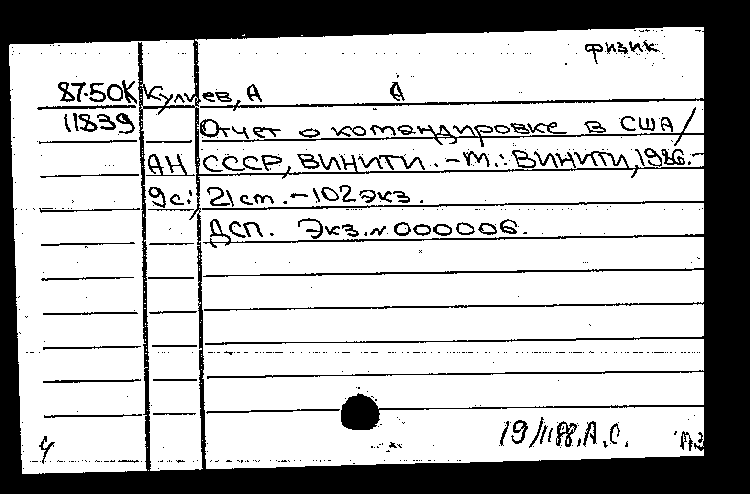 физик
87-50К Кулиев, А А
11839 Отчет о командировке в США/
АН СССР, ВИНИТИ. - М.: ВИНИТИ, 1986.-
9с.; 21 ст. - 102 экз.
ДСП. Экз. № 000006.
19/1188. А.С.
4